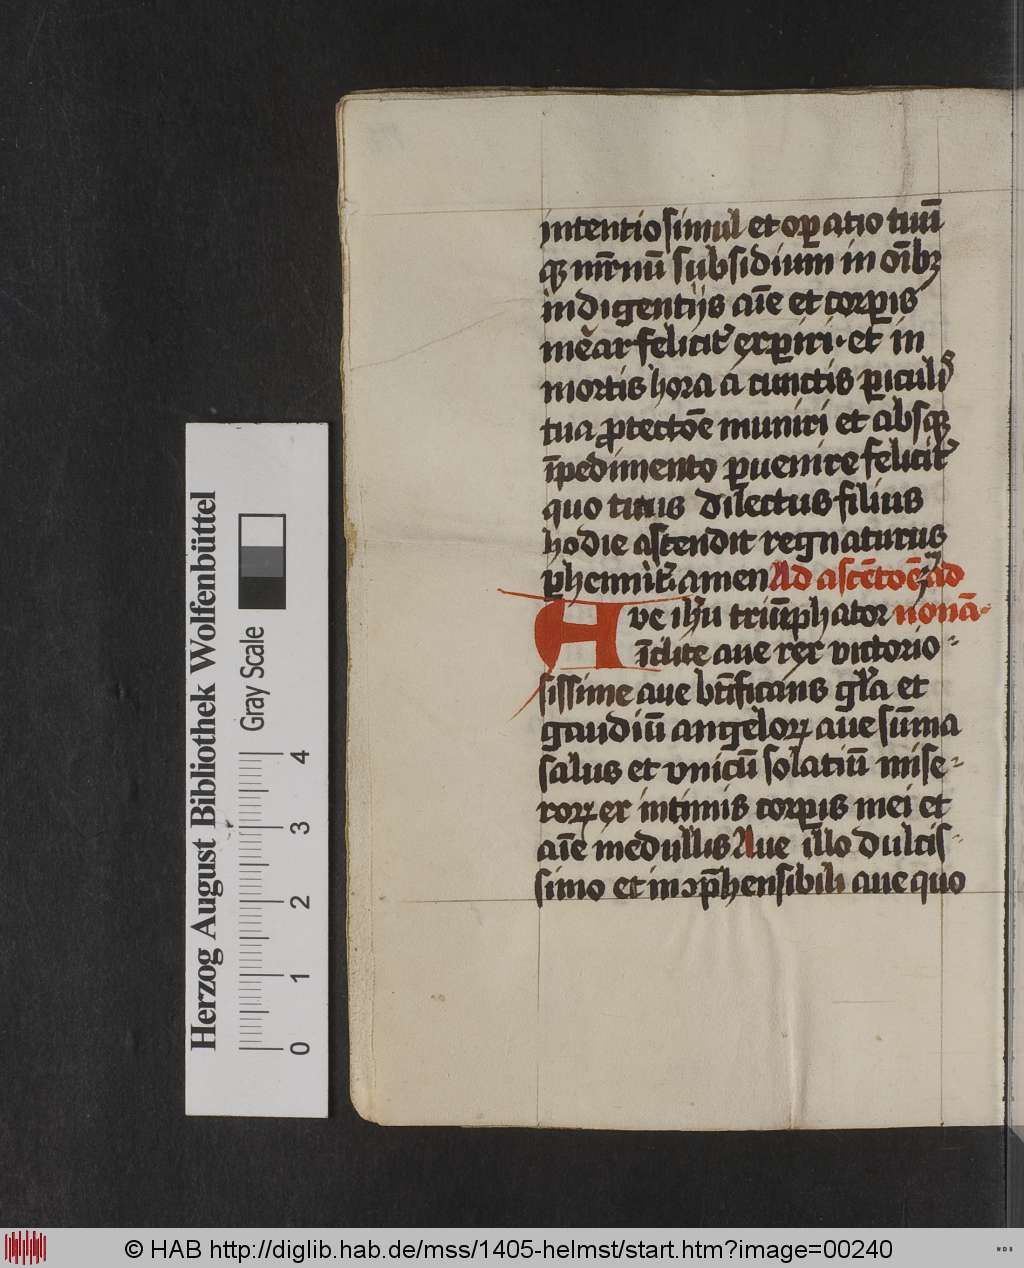 intentio simul et oꝑatio tuū
qꝫ mr̄nū subsidium in oı̄bꝫ
indigentijs aı̄e et corꝑis
mear felicit̛ exꝑiri · et in
mortis hora a cunctis ꝑiculis
tua ꝓtectōe muniri et absqꝫ
īpedimento ꝑuenire felicit̛
quo tuus dilectus filius
hodie ascendit regnaturus
ꝑhennit̛ amen Ad ascēcōēꝫ ad
Ave ihu triūphator nonā
īclite aue rex victorio-
sissime aue btīficans gl̄a et
gaudiū angeloꝝ aue sūma
salus et vnicū solatiū mise-
roꝝ ex intimis corꝑis mei et
aı̄e medullis Aue illo dulcis-
simo et inↄp̄hensibili aue quo
Herzog August Bibliothek Wolfenbüttel
Gray Scale
0 1 2 3 4
© HAB http://diglib.hab.de/mss/1405-helmst/start.htm?image=00240